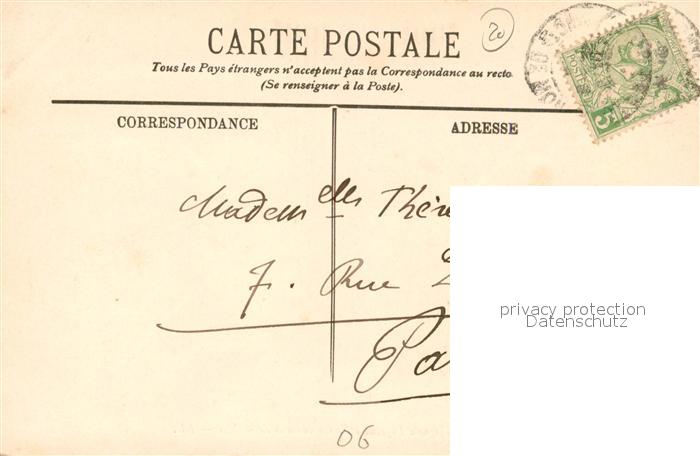 20
CARTE POSTALE
Tous les Pays étrangers n'acceptent pas la Correspondance au recto
(Se renseigner à la Poste).
CORRESPONDANCE
ADRESSE
POSTES
5
Madem elles Thére
7. Rue
Pa
privacy protection
Datenschutz
06